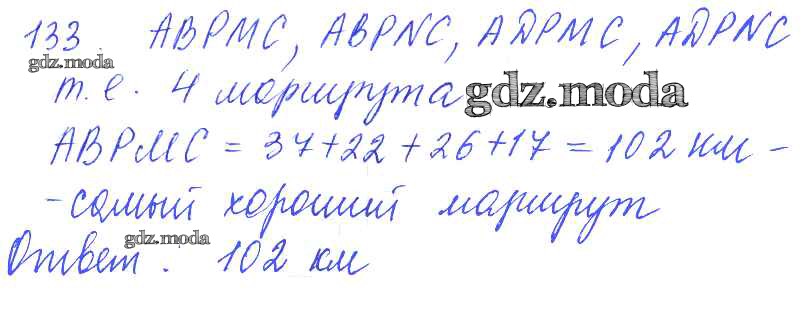 133. АВРМС, АВРNС, АДРМС, АДРNС
gdz.moda
т.е. 4 маршрута
gdz.moda
АВРМС = 37+22+26+17 = 102 км -
- самый хороший маршрут
gdz.moda
Ответ. 102 км